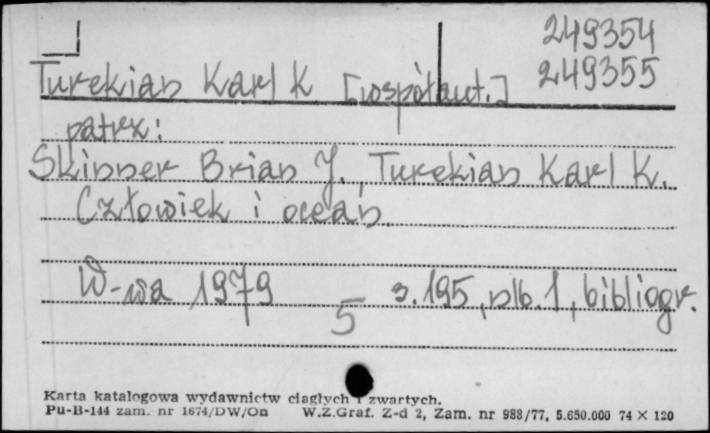 249354
Turekian Karl K [współaut.] 249355
patrz:
Skinner Brian J., Turekian Karl K.
Człowiek i ocean.
W-wa 1979 s. 195, nlb. 1, bibliogr.
5
Karta katalogowa wydawnictw ciągłych i zwartych.
Pu-B-144 zam. nr 1674/DW/On W.Z.Graf. Z-d 2, Zam. nr 988/77, 5.650.000 74 × 120